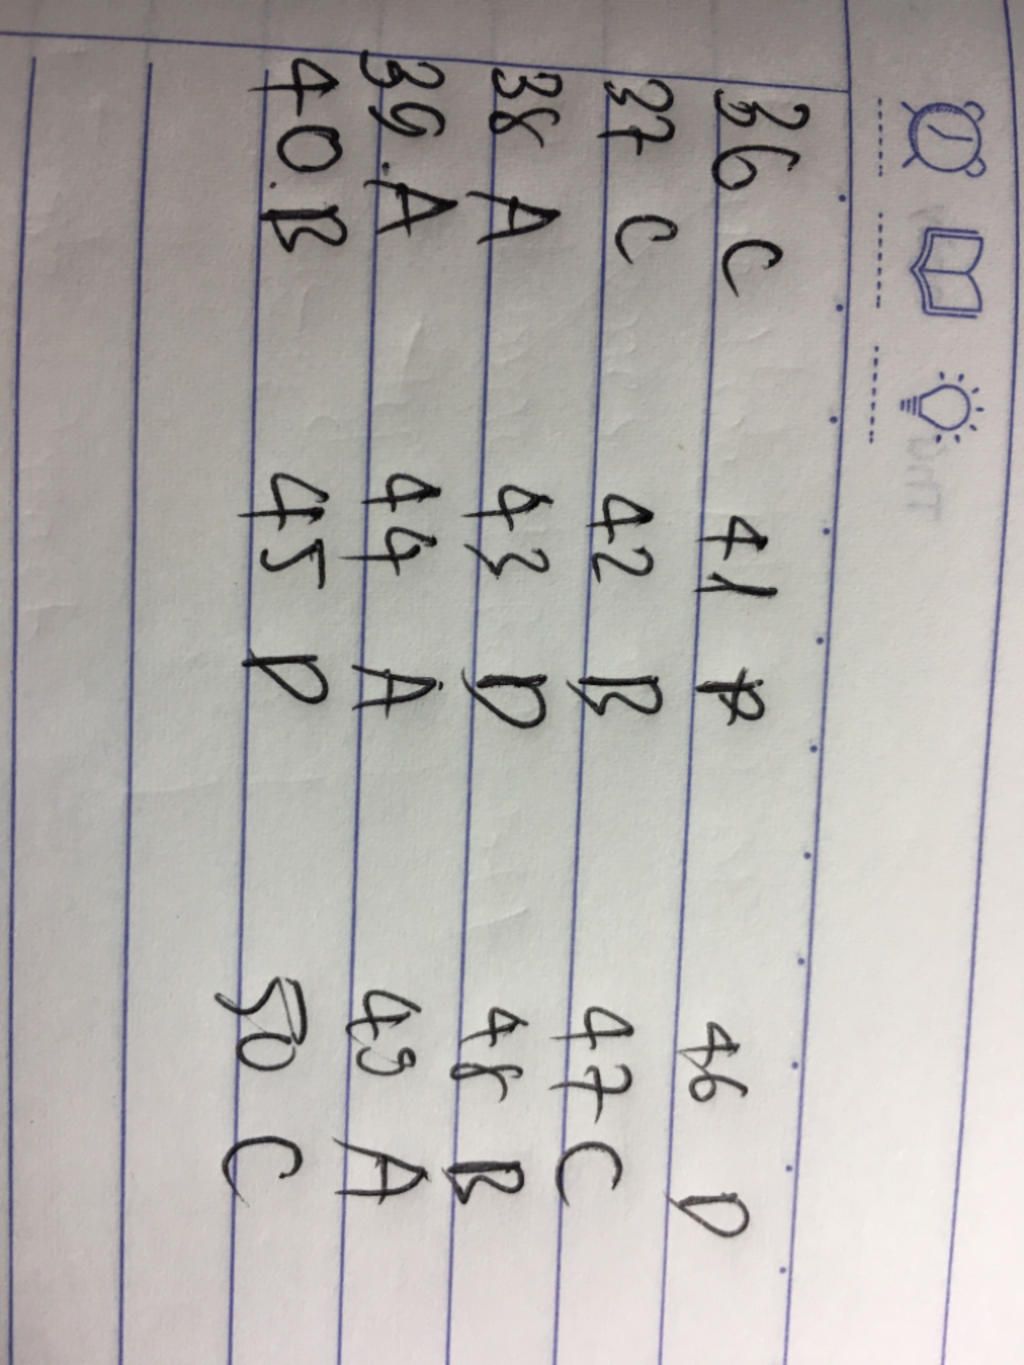 36 C 41 46 D
37 C 42 B 47 C
38 A 43 D 48 B
39. A 44 A 49 A
40. B 45 D 50 C